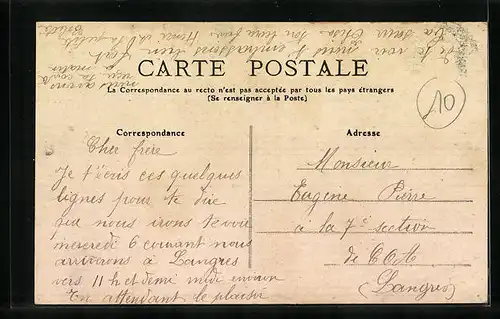 CARTE POSTALE
La Correspondance au recto n'est pas acceptée par tous les pays étrangers
(Se renseigner à la Poste)
Correspondance
Cher frère
Je t'écris ces quelques
lignes pour te dire
que nous irons te voir
mercredi 6 courant nous
arrivrons à Langres
vers 11 h et demi midi environ
En attendant le plaisir
de te voir
Adresse
Monsieur
Eugène Pierre
à la 7e section
de COA
(Langres)
10